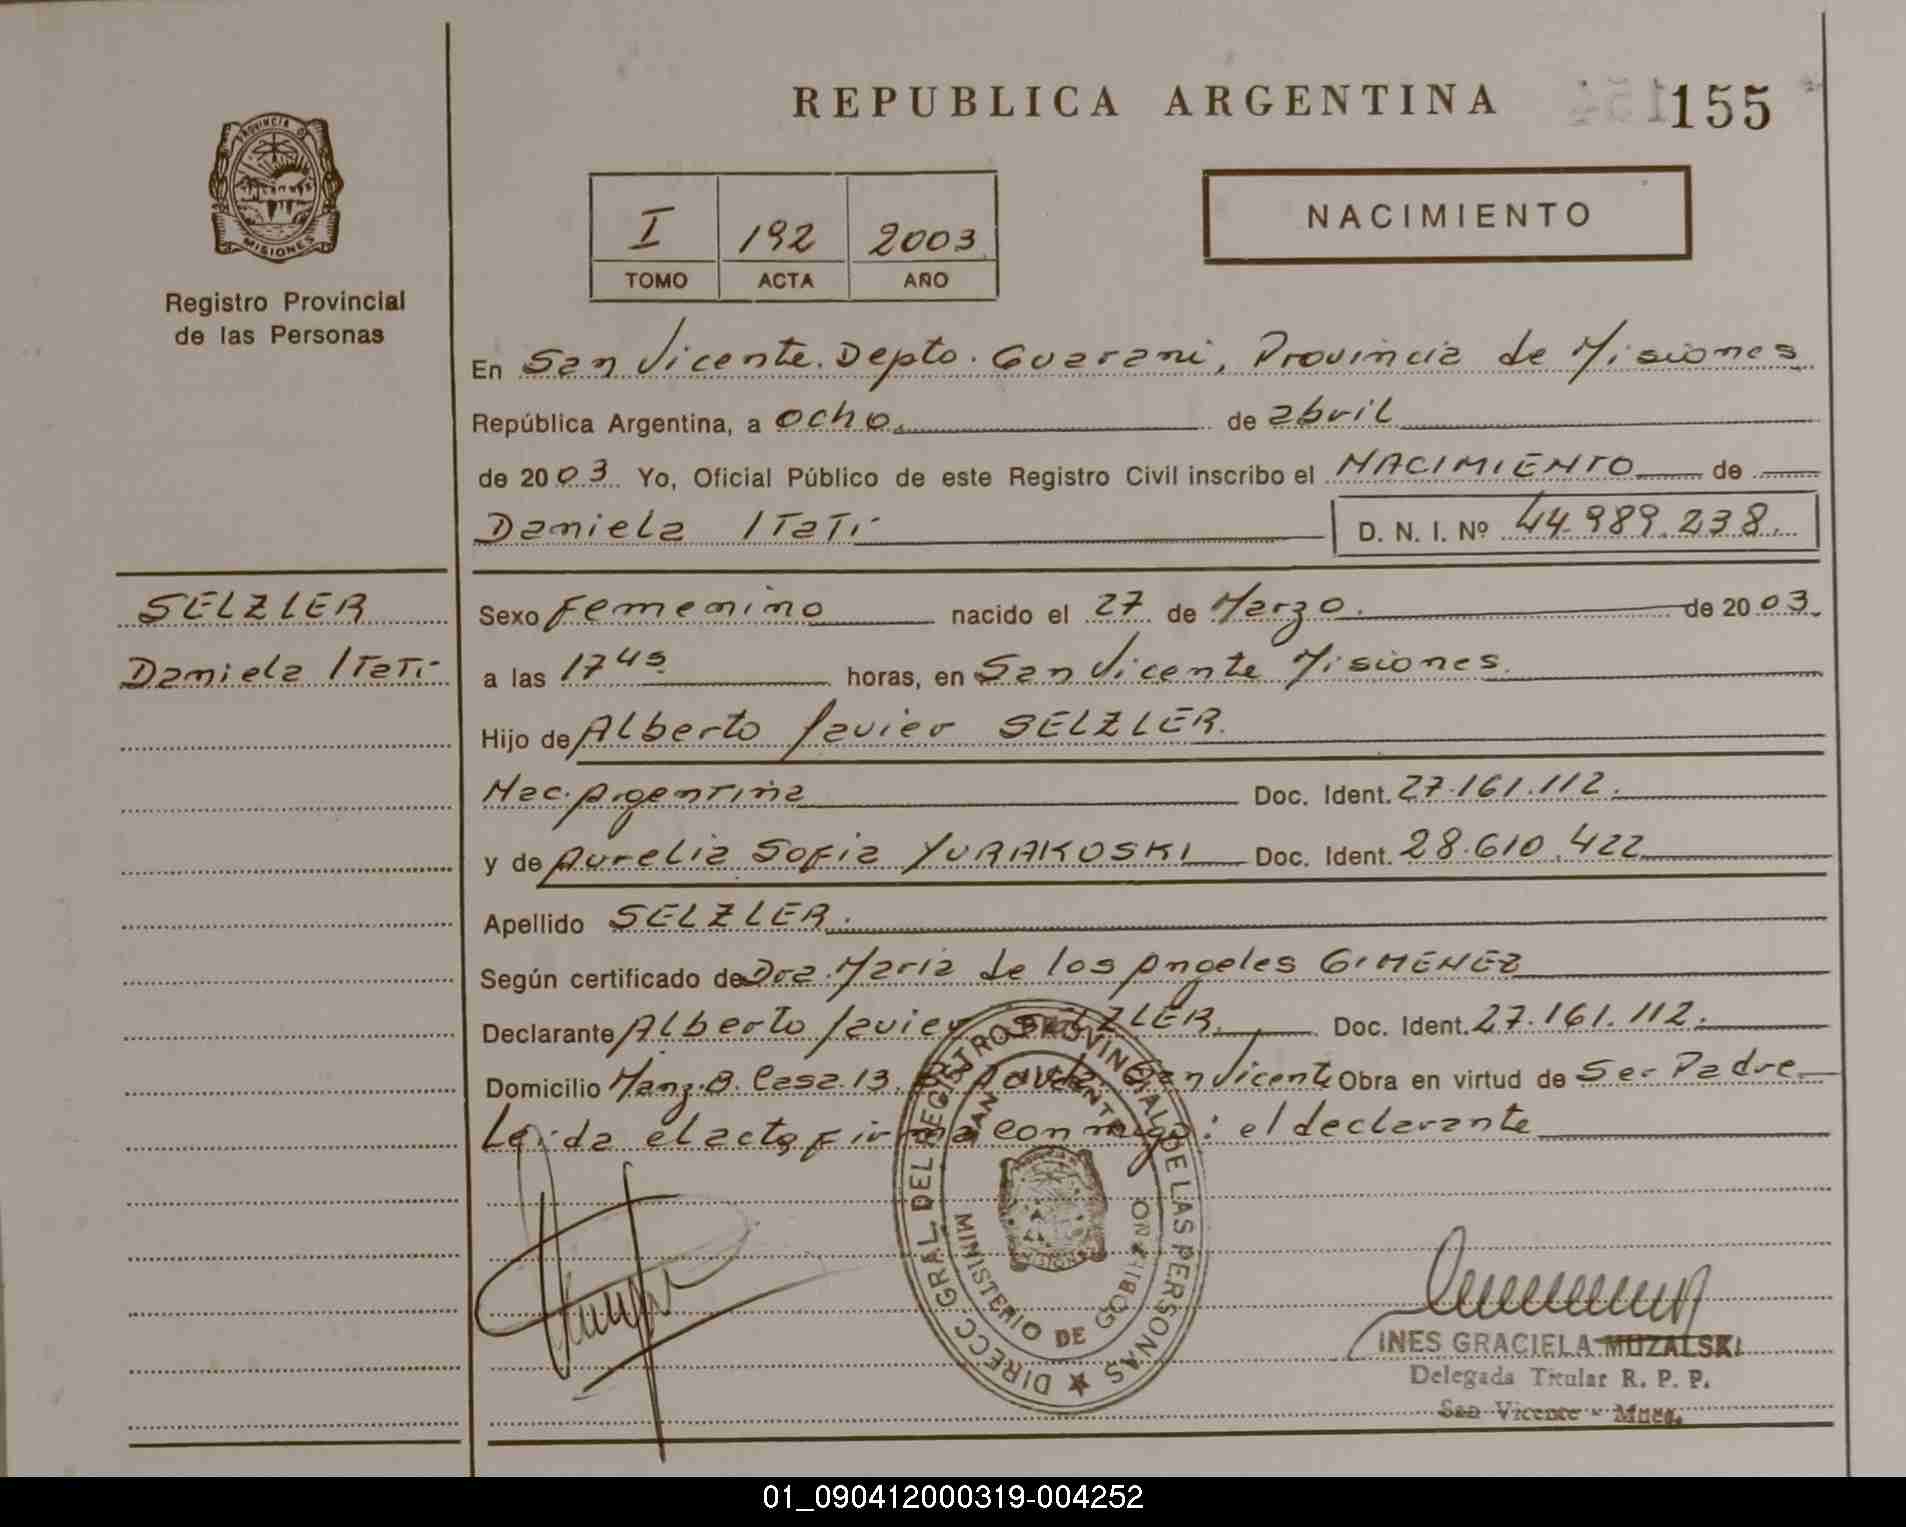 REPUBLICA ARGENTINA
155
PROVINCIA DE
MISIONES
Registro Provincial
de las Personas
I 192 2003
TOMO ACTA AÑO
NACIMIENTO
En San Vicente. Depto. Guarani, Provincia de Misiones
República Argentina, a ocho. de abril
de 2003 Yo, Oficial Público de este Registro Civil inscribo el NACIMIENTO de
Daniela Itati D. N. I. Nº 44.989.238.
SELZLER
Daniela Itati
Sexo Femenino nacido el 27 de Marzo. de 2003.
a las 17 45 horas, en San Vicente Misiones.
Hijo de Alberto Javier SELZLER.
Nac. Argentina Doc. Ident. 27.161.112.
y de Aurelia Sofia YURAKOSKI Doc. Ident. 28.610.422
Apellido SELZLER.
Según certificado de Dra. Maria de los Angeles GIMENEZ
Declarante Alberto Javier SELZLER. Doc. Ident. 27.161.112.
Domicilio Manz. B. Casa. 13. San Vicente Obra en virtud de Ser Padre
Leida el acta, firma conmigo: el declarante
DIRECC. GRAL. DEL REGISTRO PROVINCIAL DE LAS PERSONAS
SAN VICENTE
MINISTERIO DE GOBIERNO
INES GRACIELA MUZALSKI
Delegada Titular R. P. P.
San Vicente - Mnes.
01_090412000319-004252